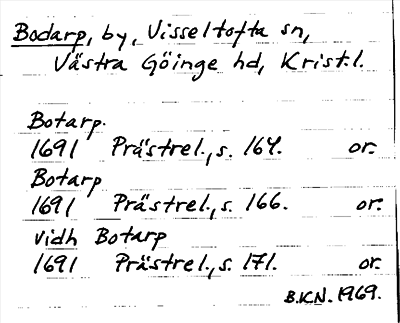 Bodarp, by, Visseltofta sn,
Västra Göinge hd, Krist:l.
Botarp.
1691 Prästrel., s. 164. or.
Botarp
1691 Prästrel., s. 166. or.
vidh Botarp
1691 Prästrel., s. 171. or.
B.K.N. 1969.